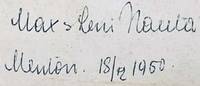 Max & Leni Nauta
Menton. 18/2 1950.